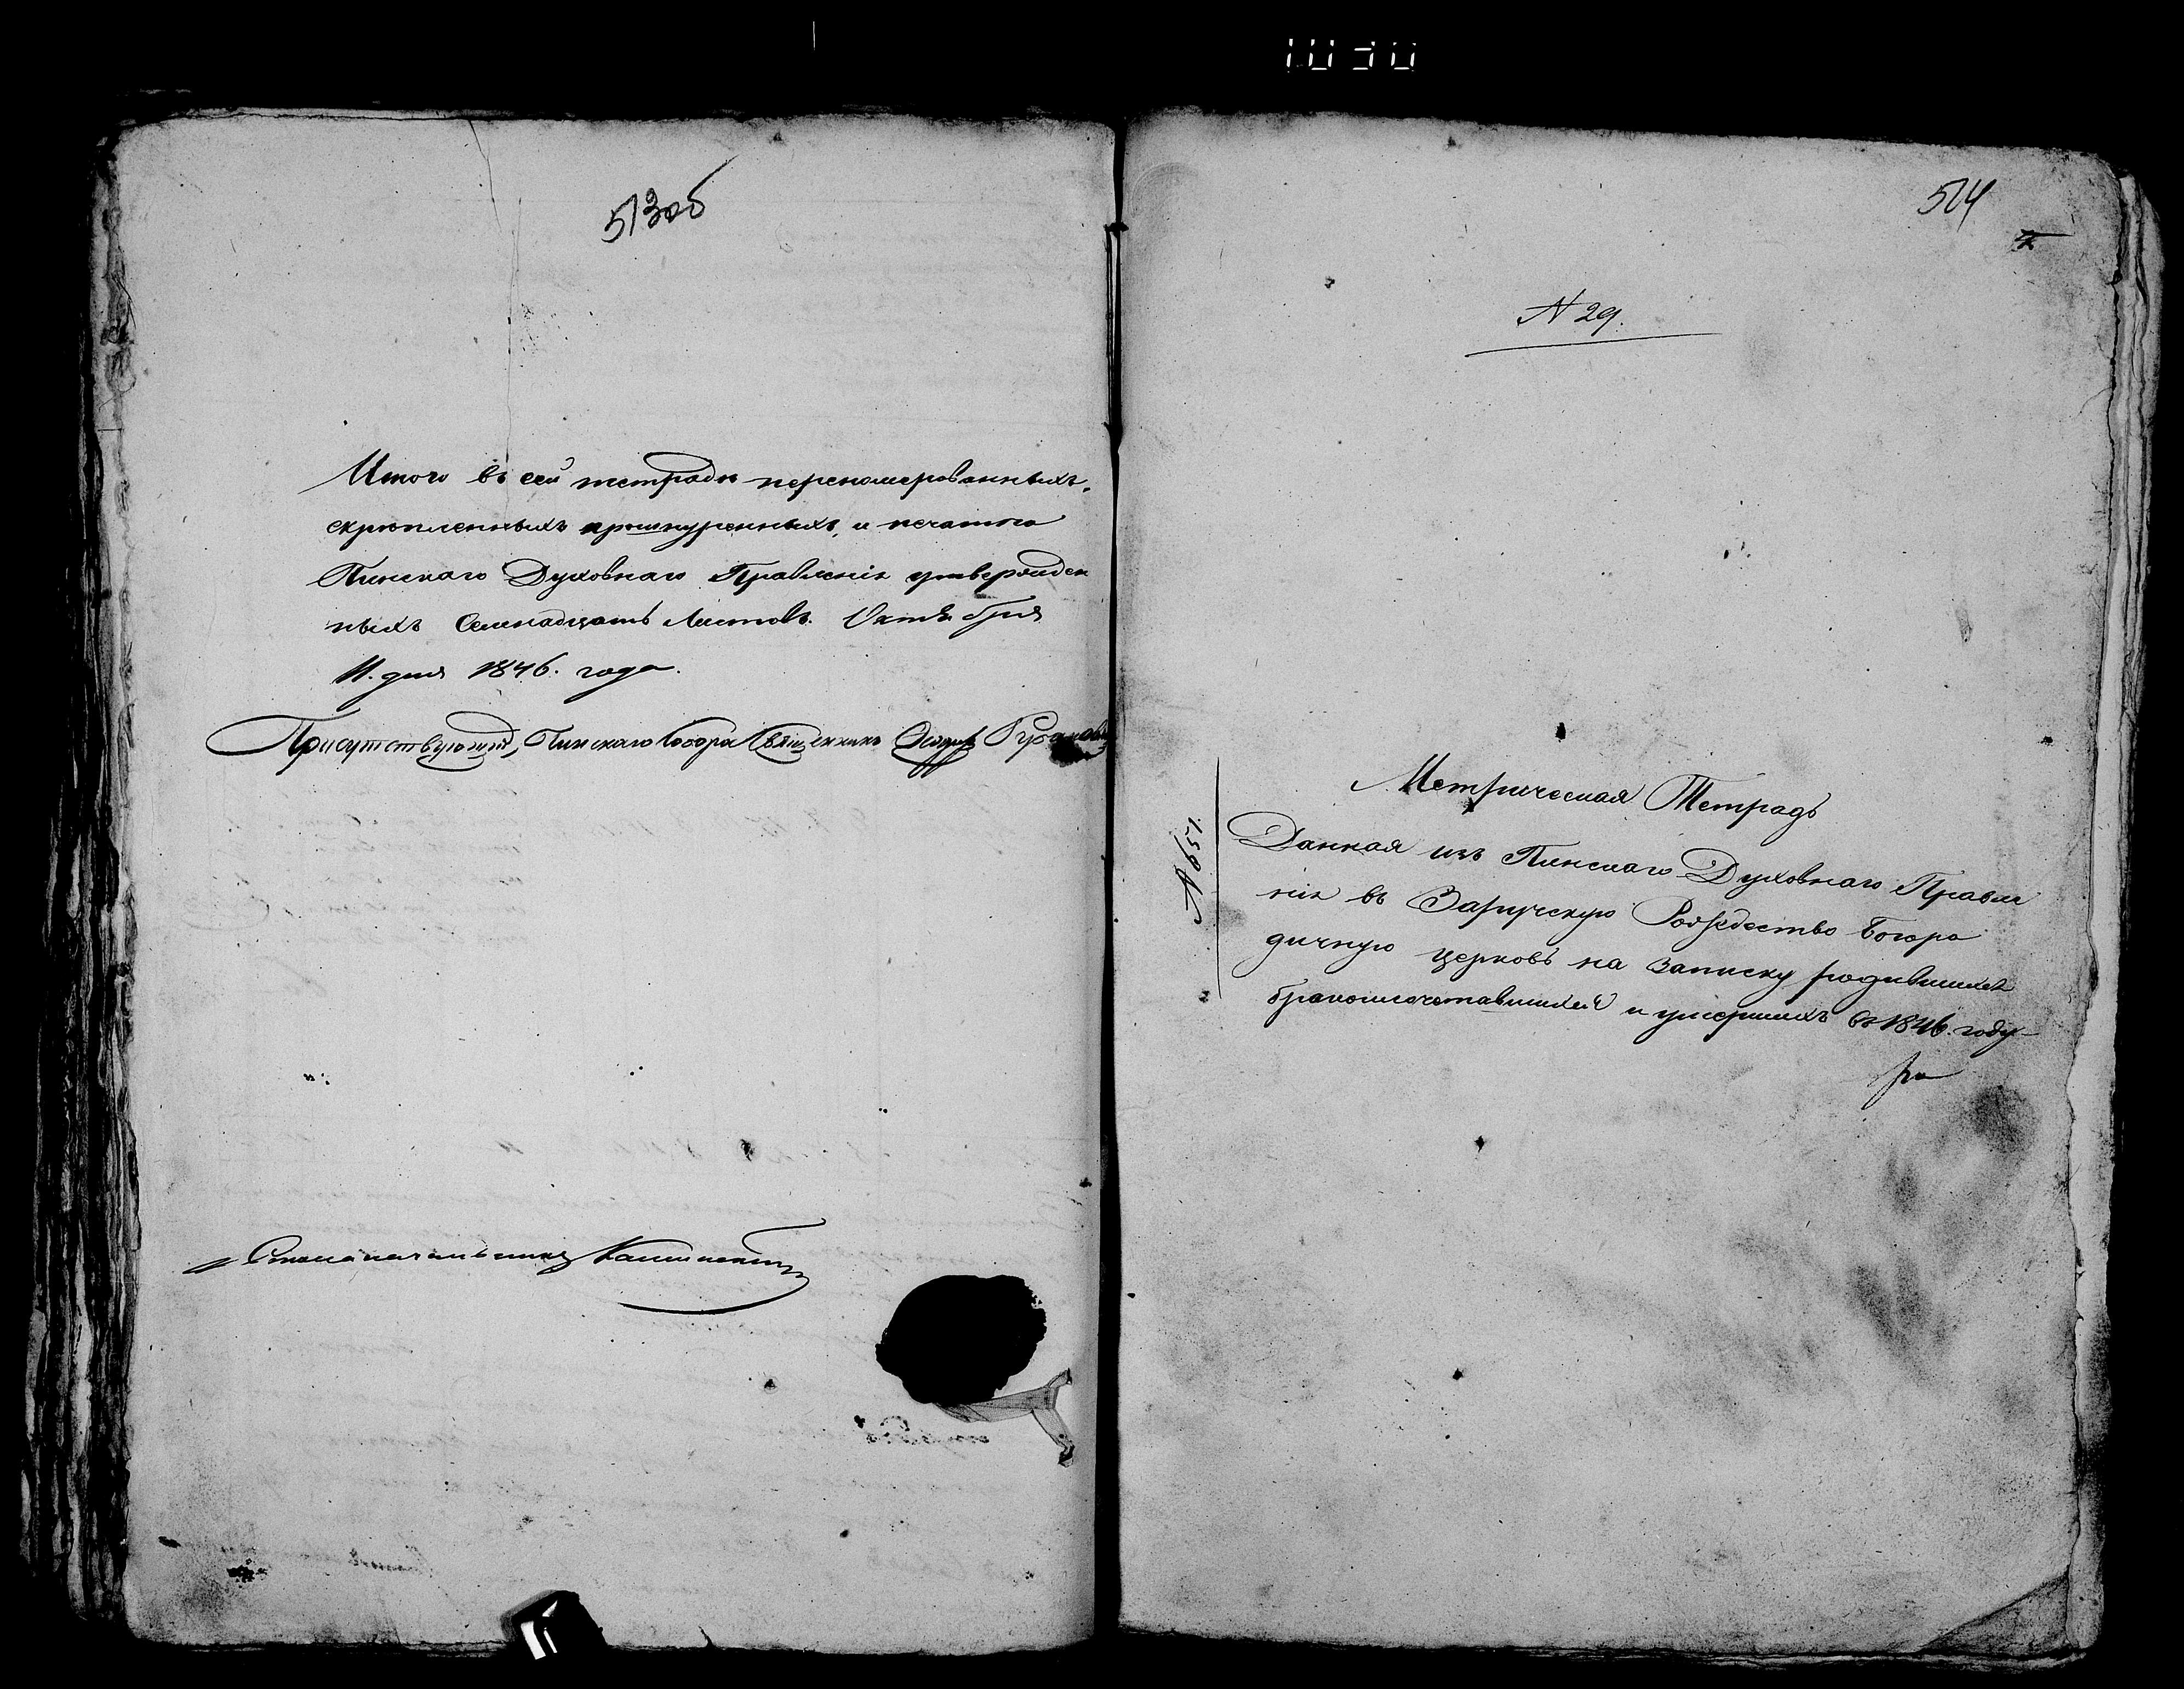 513об
Итого въ сей тетради перенумерованныхъ,
скрѣпленныхъ прошнуренныхъ, и печатью
Пинскаго Духовнаго Правленія утвержден
ныхъ Семнадцать листовъ. Октября
11. дня 1846. года.
Присутствующій, Пинскаго Собора Священникъ
Столоначальникъ
514
N 29.
N 651.
Метрическая Тетрадь
Данная изъ Пинскаго Духовнаго Правле
нія въ Заручскую Рождество Богоро
дичную церковь на записку родившихся
бракосочетавшихся и умершихъ въ 1846. году